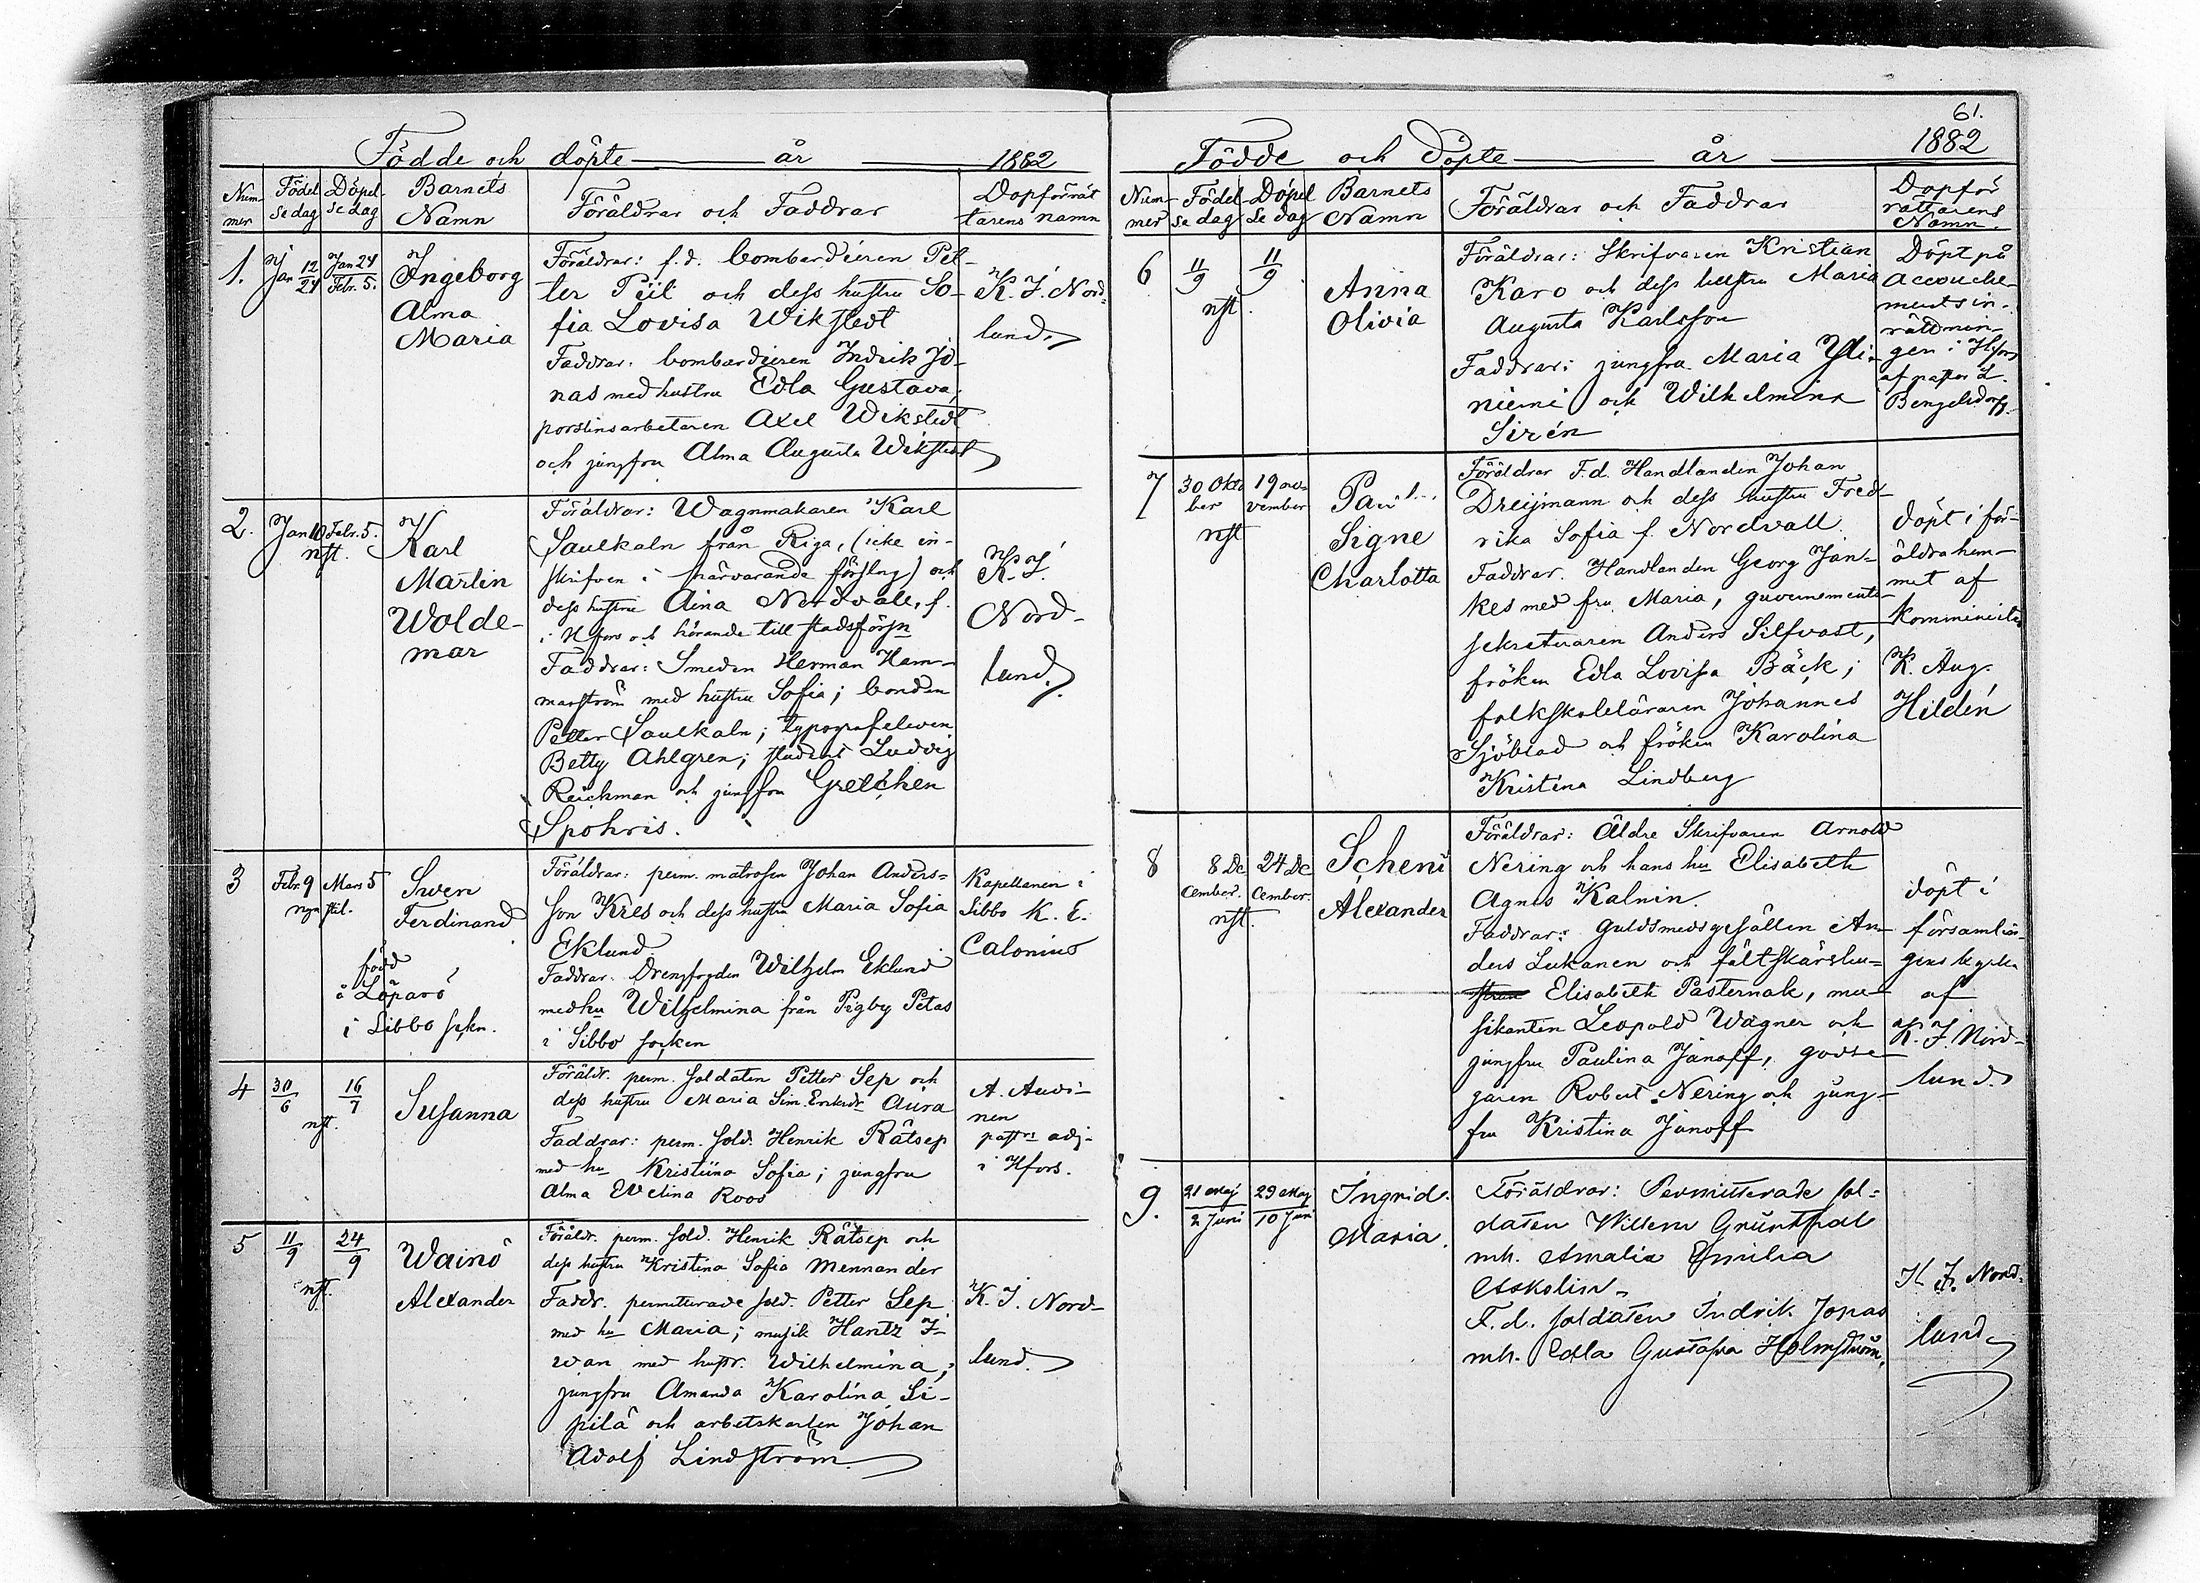 Födde och döpte år 1882
Num-
mer
Födel
se dag
Döpel
se dag
Barnets
Namn
Föräldrar och Faddrar
Dopförrät
tarens namn
1.
Jan 12/24
Jan 24/Febr. 5.
Ingeborg
Alma
Maria
Föräldrar: f.d. bombardieren Pet-
ter Piil och dess hustru So-
fia Lovisa Wikstedt
Faddrar: bombardieren Indrik Jo-
nas med hustru Edla Gustava;
porslinsarbetaren Axel Wikstedt
och jungfru Alma Augusta Wikstedt
K. J. Nord-
lund.
2.
Jan 10
Febr. 5.
nst.
Karl
Martin
Wolde-
mar
Föräldrar: Wagnmakaren Karl
Saulkaln från Riga, (icke in-
skrifven i härvarande försmlng) och
dess hustru Aina Nordvall, f.
i Hfors och hörande till stadsförsn
Faddrar: Smeden Herman Ham-
marström med hustru Sofia; bonden
Petter Saulkaln; typografeleven
Betty Ahlgren; student Ludvig
Reickman och jungfru Gretchen
Spohris.
K. J.
Nord-
lund.
3
Febr. 9
Mars 5
nya stil.
Swen
Ferdinand
född
i Löparö
i Sibbo sckn.
Föräldrar: perm. matrosen Johan Anders-
son Kres och dess hustru Maria Sofia
Eklund
Faddrar: Drengfogden Wilhelm Eklund
med hu Wilhelmina från Pigby Petas
i Sibbo socken
Kapellanen i
Sibbo K. E.
Calonius
4
30/6
16/7
nst.
Susanna
Föräldr. perm. soldaten Petter Sep och
dess hustru Maria Sim. Eriksdr Aura
Faddrar: perm. sold. Henrik Rätsep
med hu Kristiina Sofia; jungfru
Alma Evelina Roos
A. Auvi-
nen
past:s adj-
i Hfors.
5
11/9
24/9
nst.
Wäinö
Alexander
Föräldr. perm. sold. Henrik Rätsep och
dess hustru Kristina Sofia Mennander
Faddr. permitterade sold. Petter Sep
med hu Maria; musik Hantz I-
wan med hustr. Wilhelmina;
jungfru Amanda Karolina Si-
pilä och arbetskarlen Johan
Adolf Lindström
K. J. Nord-
lund.
61.
Födde och döpte år 1882
Num-
mer
Födel
se dag
Döpel
se dag
Barnets
Namn
Föräldrar och Faddrar
Dopför
rättarens
Namn.
6
11/9
11/9
nst.
Anna
Olivia
Föräldrar: Skrifvaren Kristian
Karo och dess hustru Maria
Augusta Karlsson
Faddrar: jungfru Maria Yli-
niemi och Wilhelmina
Sirén
Döpt på
accouche-
mentsin-
rättnin-
gen i Hfors
af pastor L.
Bengelsdorff.
7
30 Okto
ber
19 no-
vember
nst
Signe
Charlotta
Föräldrar F.d. Handlanden Johan
Dreijmann och dess hustru Fred-
rika Sofia f. Nordvall.
Faddrar. Handlanden Georg Jan-
kes med fru Maria, guvernements-
sekreteraren Anders Silfvast,
fröken Edla Lovisa Bäck;
folkskoleläraren Johannes
Sjöblad och fröken Karolina
Kristina Lindberg
döpt i för-
äldrahem-
met af
Kommin­ister
K. Aug.
Hildén
8
8 De
cember.
24 De
cember.
nst.
Scheni
Alexander
Föräldrar: Äldre Skrifvaren Arnold
Nering och hans hu Elisabeth
Agnes Kalnin.
Faddrar: guldsmedsgesällen An-
ders Lukanen och fältskärshu-
stran Elisabeth Pasternak, mu-
sikanten Leopold Wagner och
jungfru Paulina Janoff, godsä-
garen Robert Nering och jung-
fru Kristina Janoff
döpt i
församlin-
gens kyrka
af
K. J. Nord-
lund.
9.
21 Maj/2 Juni
29 Maj/10 Juni
Ingrid
Maria.
Föräldrar: Permitterade sol-
daten Willem Grünthal
mh. Amalia Emilia
Askolin.
F. d. soldaten Indrik Jonas
mh. Edla Gustafva Holmström.
K. J. Nord-
lund